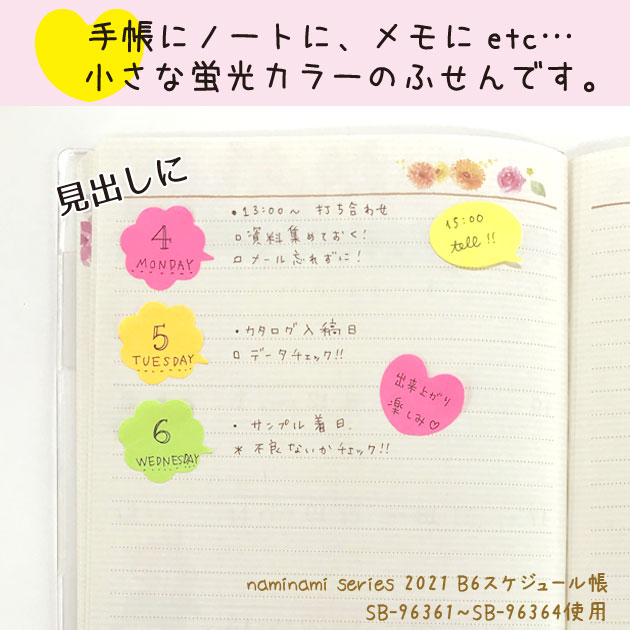 手帳にノートに、メモにetc…
小さな蛍光カラーのふせんです。
見出しに
4
MONDAY
•13:00〜 打ち合わせ
□資料集めておく!
□メール忘れずに!
15:00
tell!!
5
TUESDAY
・カタログ入稿日
□データチェック!!
出来上がり
楽しみ♡
6
WEDNESDAY
・サンプル着日.
*不良ないかチェック!!
naminami series 2021 B6スケジュール帳
SB-96361~SB-96364使用